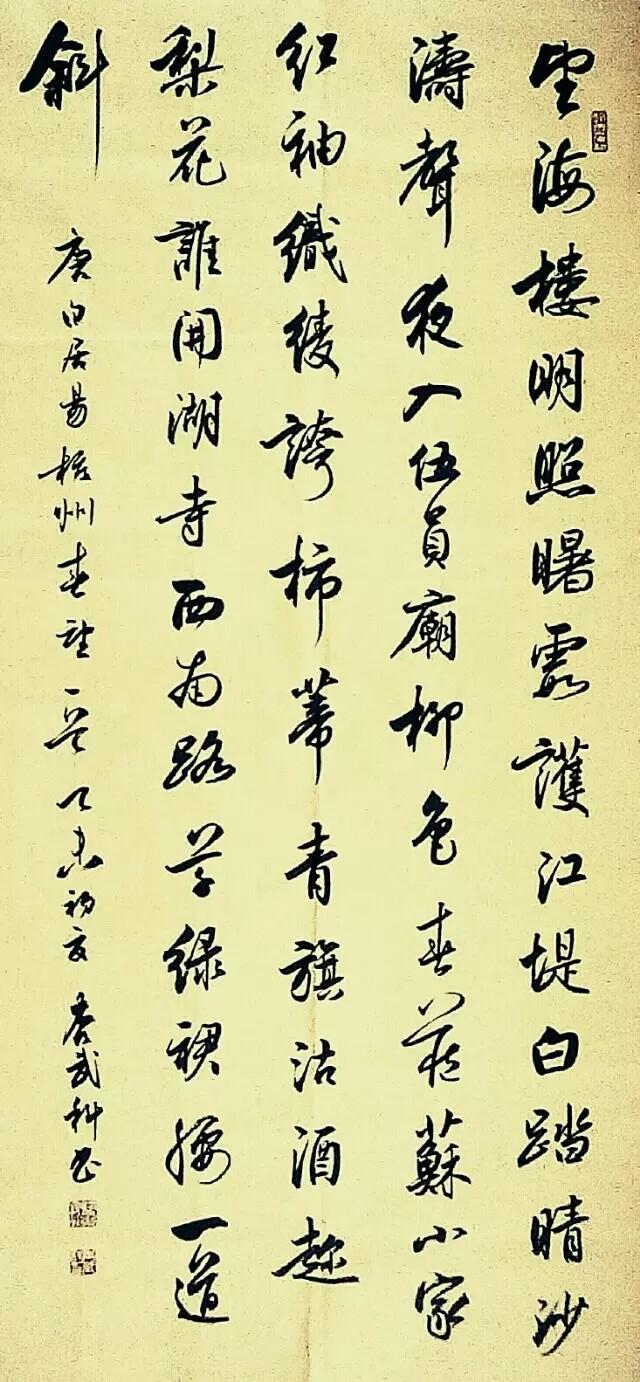 望海樓明照曙霞護江堤白踏晴沙
濤聲夜入伍員廟柳色春藏蘇小家
紅袖織綾誇柿蒂青旗沽酒趁
梨花誰開湖寺西南路草綠裙腰一道
斜
唐白居易杭州春望一首 未初夏 武科書